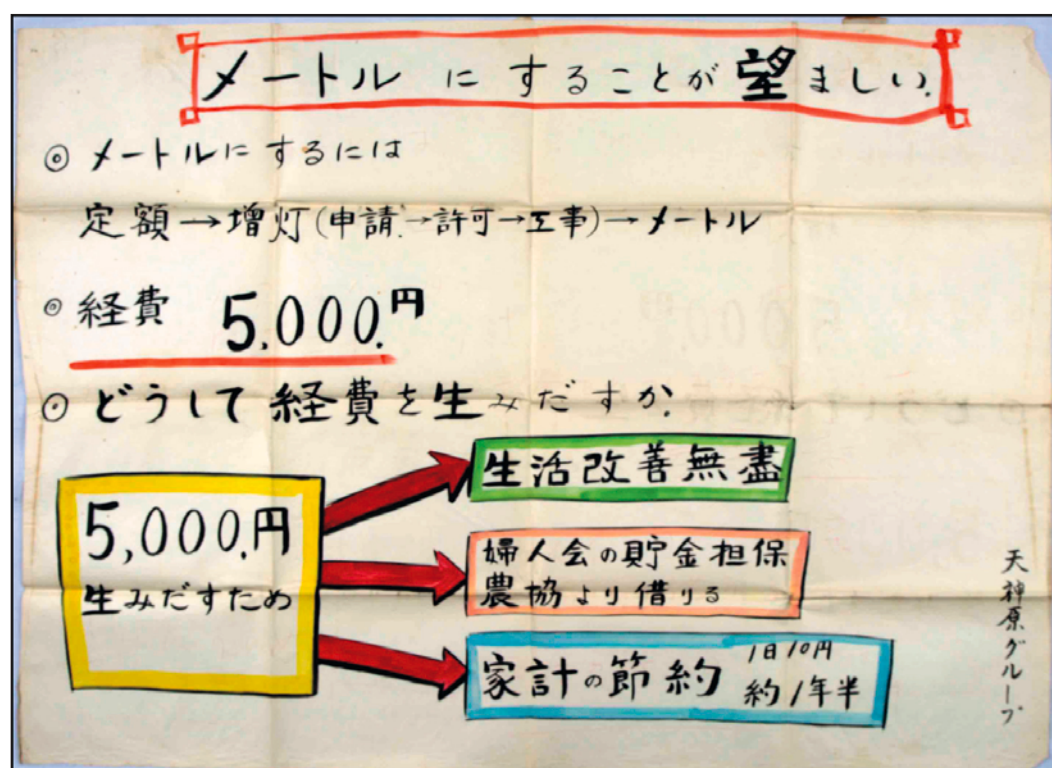 メートルにすることが望ましい.
◎ メートルにするには
定額→増灯(申請→許可→工事)→メートル
◎ 経費 5,000.円
◎ どうして経費を生みだすか.
5,000.円
生みだすため
生活改善無盡
婦人会の貯金担保
農協より借りる
家計の節約 1日10円
約1年半
天神原グループ